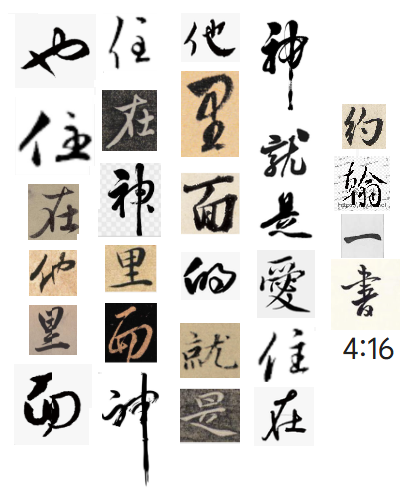 約翰一書
4:16
神就是愛住在
他里面的就是
住在神里面神
也住在他里面